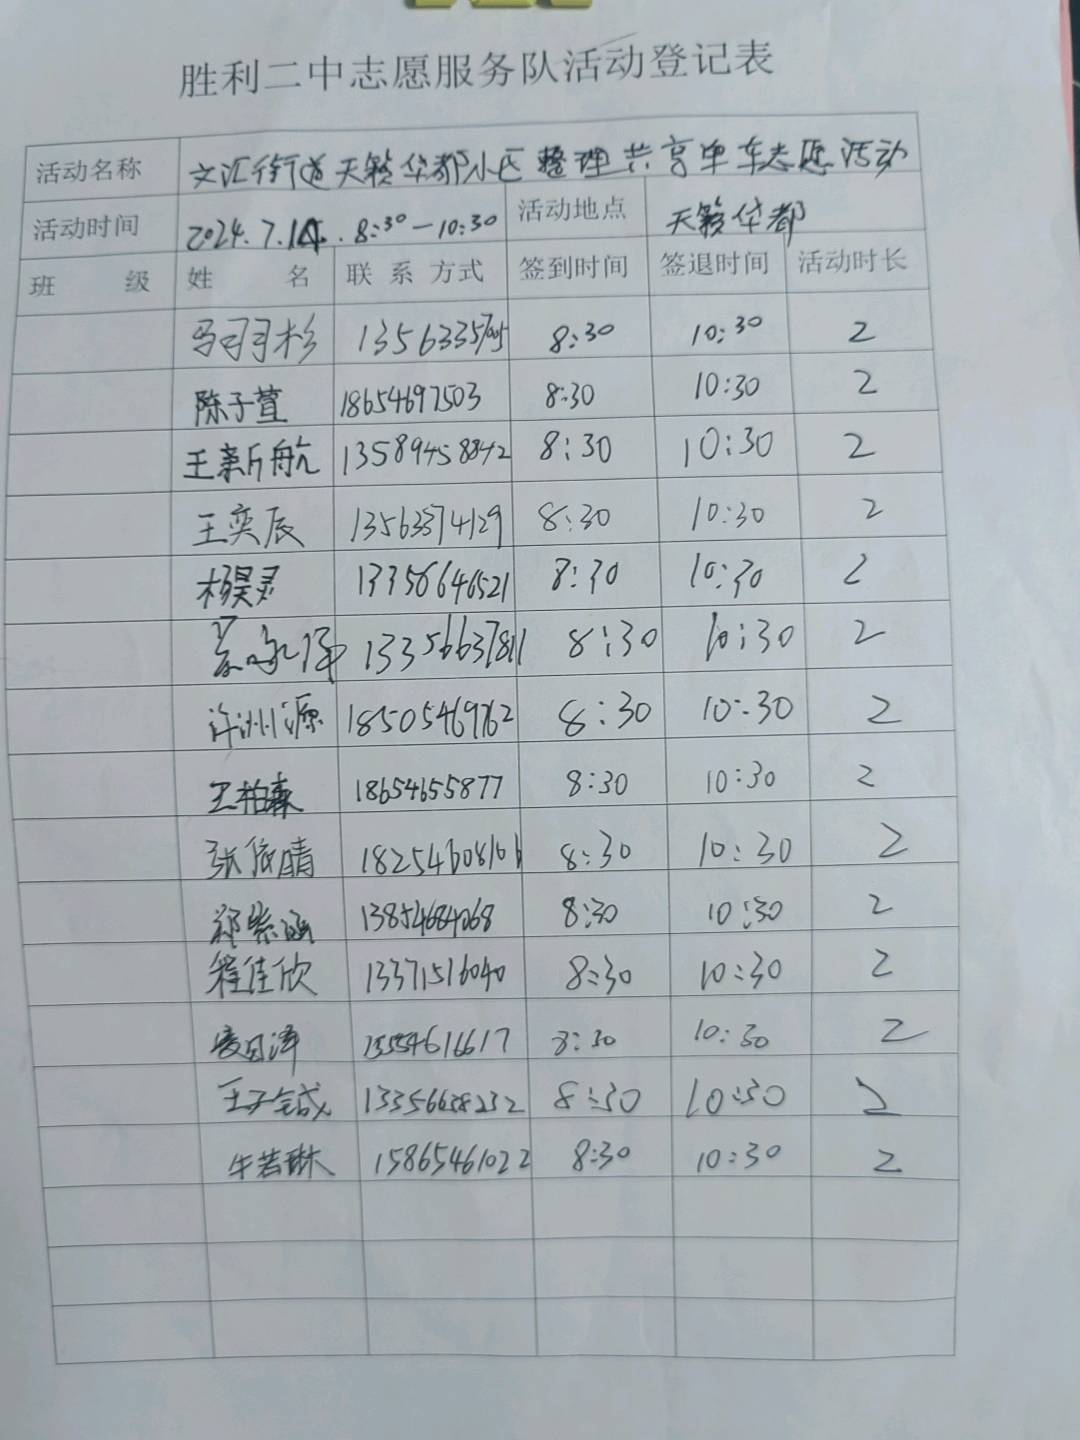 胜利二中志愿服务队活动登记表
活动名称 文汇街道天籁华都小区整理共享单车志愿活动
活动时间 2024.7.14. 8:30-10:30 活动地点 天籁华都
班 级 姓 名 联系方式 签到时间 签退时间 活动时长
8:30 10:30 2
陈子萱 18654697503 8:30 10:30 2
王新航 13589458842 8:30 10:30 2
王奕辰 13563374129 8:30 10:30 2
杨昊灵 13356646521 8:30 10:30 2
13356637811 8:30 10:30 2
许洲源 18505469762 8:30 10:30 2
王柏森 18654655877 8:30 10:30 2
张依晴 18254608106 8:30 10:30 2
郑紫涵 13854684068 8:30 10:30 2
程佳欣 13371516040 8:30 10:30 2
15554616617 8:30 10:30 2
王子铖 13356638232 8:30 10:30 2
牛若琳 15865461022 8:30 10:30 2